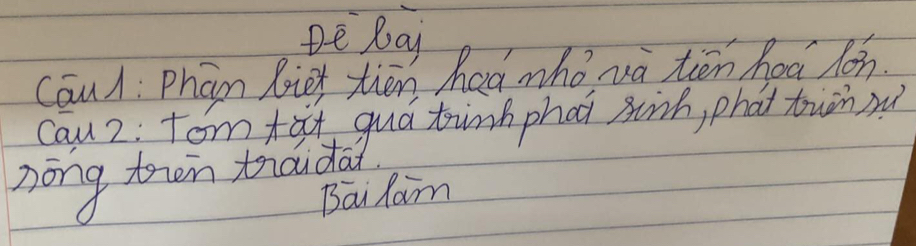 Đề bài
Câu 1: Phân biệt tiến hoá nhỏ và tiến hoá lớn.
Câu 2: Tóm tắt quá trình phát sinh, phát triển sự
sống trên trái đất.
Bài làm